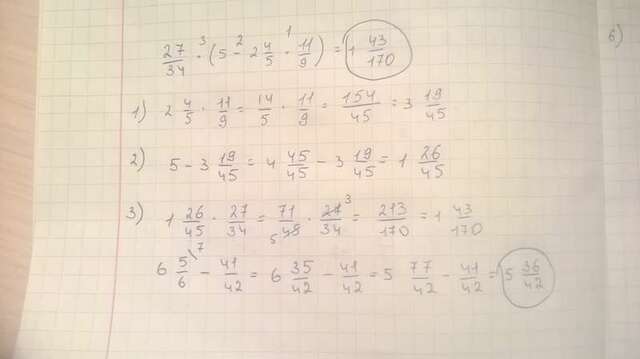 27/34 ·³ (5 -² 2 4/5 ·¹ 11/9) = 1 43/170
6)
1) 2 4/5 · 11/9 = 14/5 · 11/9 = 154/45 = 3 19/45
2) 5 - 3 19/45 = 4 45/45 - 3 19/45 = 1 26/45
3) 1 26/45 · 27/34 = 71/45 5 · 27/34 3 = 213/170 = 1 43/170
6 5/6 \7 - 41/42 = 6 35/42 - 41/42 = 5 77/42 - 41/42 = 5 36/42